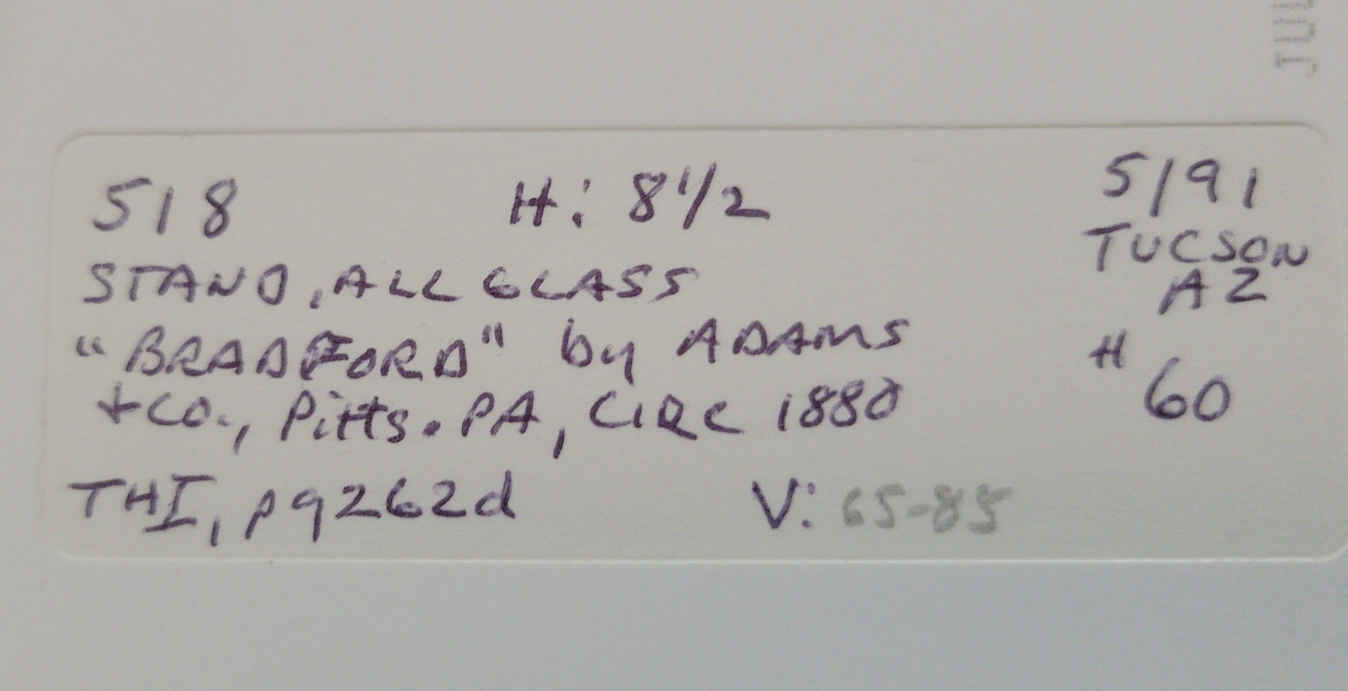 518 H: 8 1/2 5/91
TUCSON
AZ
STAND, ALL GLASS
"BRADFORD" by ADAMS # 60
+ CO., Pitts. PA, CIRC 1880
THI, pg262d V: 65-85
JUL